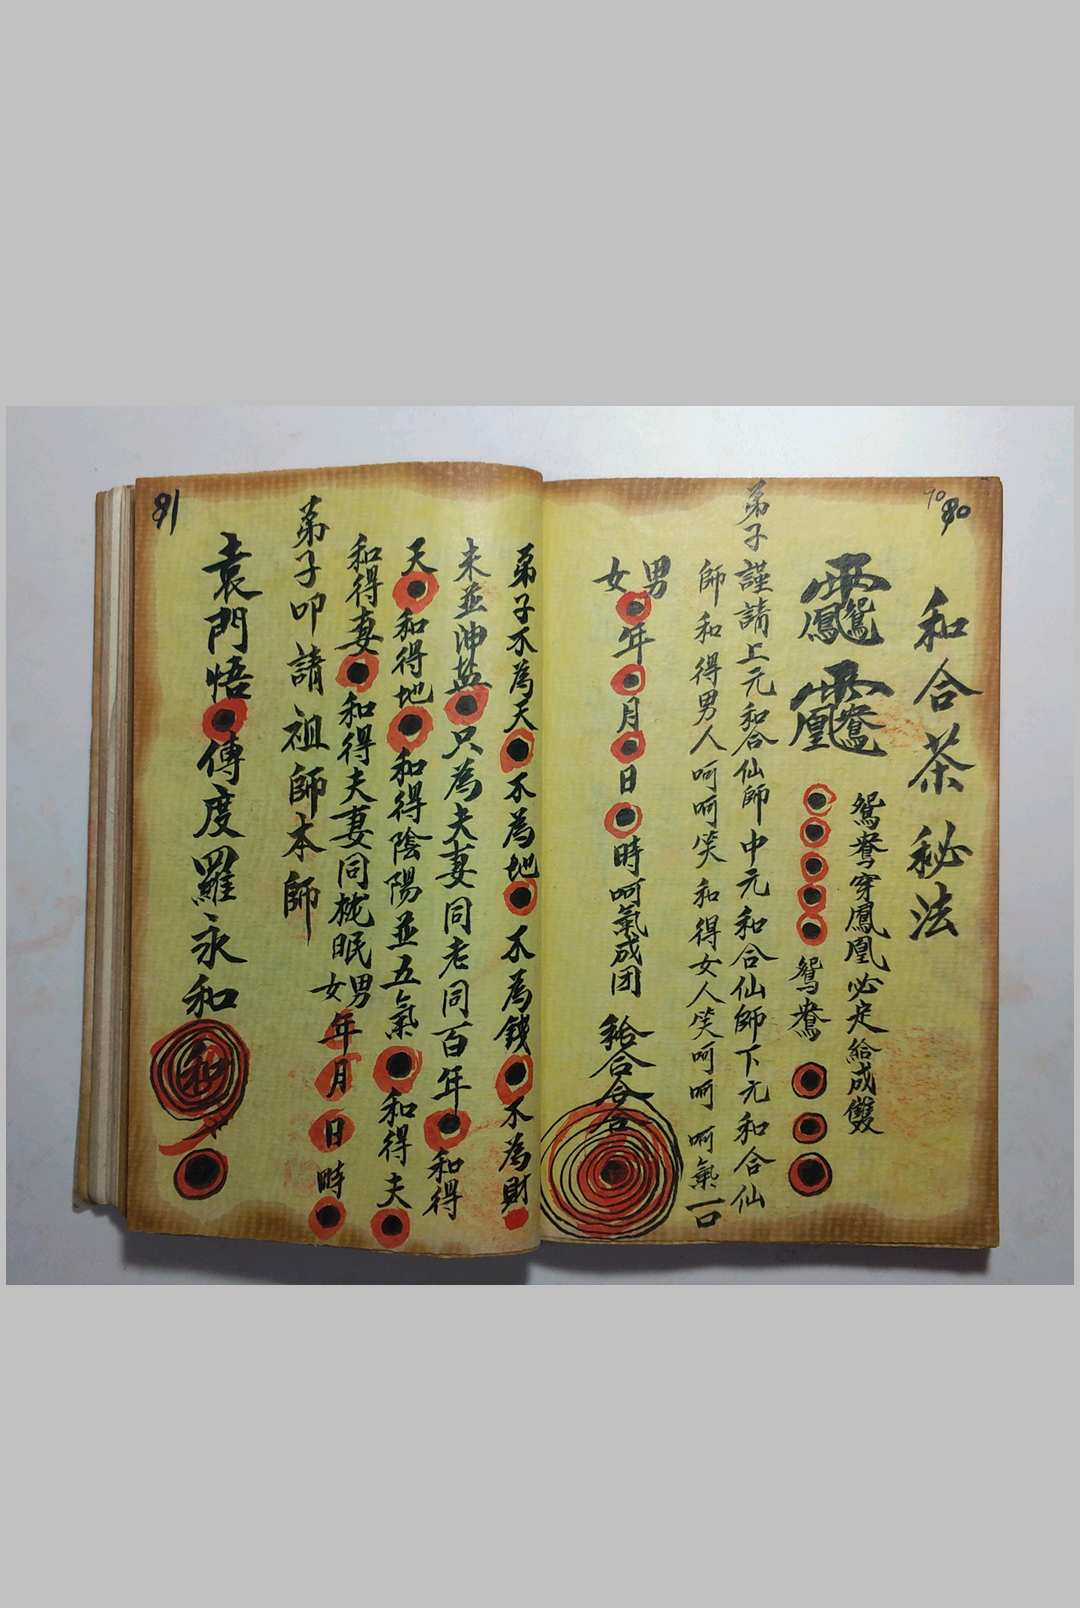 90
80
和合茶秘法
鴛鴦穿鳳凰必定給成雙
鴛鴦
弟子謹請上元和合仙師中元和合仙師下元和合仙
師和得男人呵呵笑和得女人笑呵呵呵氣一口
男女年月日時呵氣成团
合合合
81
弟子不為天不為地不為錢不為財
未並油盐只為夫妻同老同百年和得
天和得地和得陰陽並五氣和得夫
和得妻和得夫妻同枕眠男女年月日時
弟子叩請祖師本師
袁門悟傳度羅永和
和